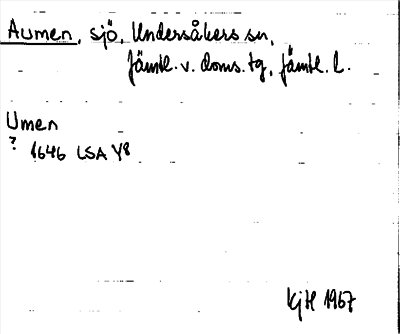 Aumen, sjö, Undersåkers sn,
Jämtl. v. doms. tg, Jämtl. l.
Umen
? 1646 LSA Y8
KjH 1967